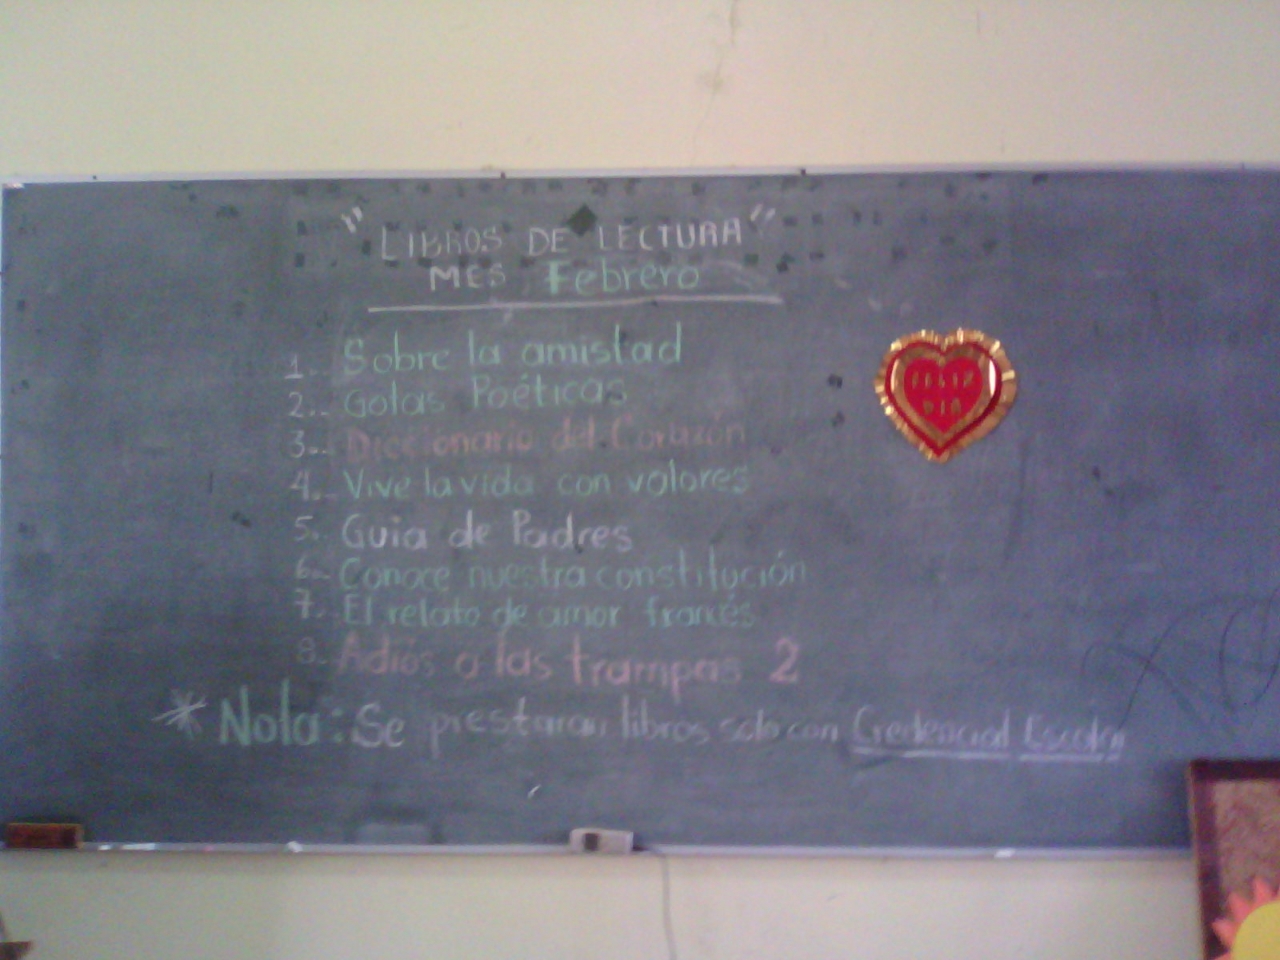 "LIBROS DE LECTURA"
MES Febrero
1.- Sobre la amistad
2.- Gotas Poéticas
3.- Diccionario del Corazón
4.- Vive la vida con valores
5.- Guia de Padres
6.- Conoce nuestra constitución
7.- El relato de amor francés
8.- Adiós a las trampas 2
* Nota: Se prestaran libros solo con Credencial Escolar
FELIZ
DIA